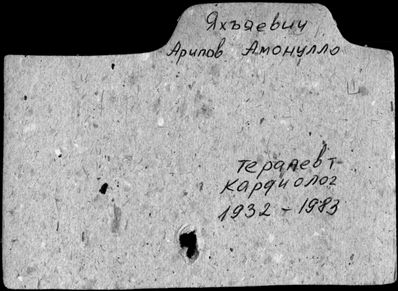 Яхъяевич
Арипов Амонулло
терапевт
кардиолог
1932-1983